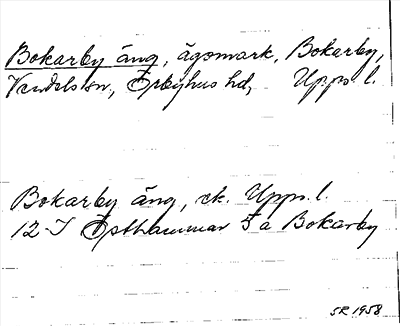 Bokarby äng, ägomark, Bokarby,
Vendels sn, Örbyhus hd, Upps. l.
Bokarby äng, ek. Upps. l.
12 I Östhammar 5 a Bokarby
SR 1958